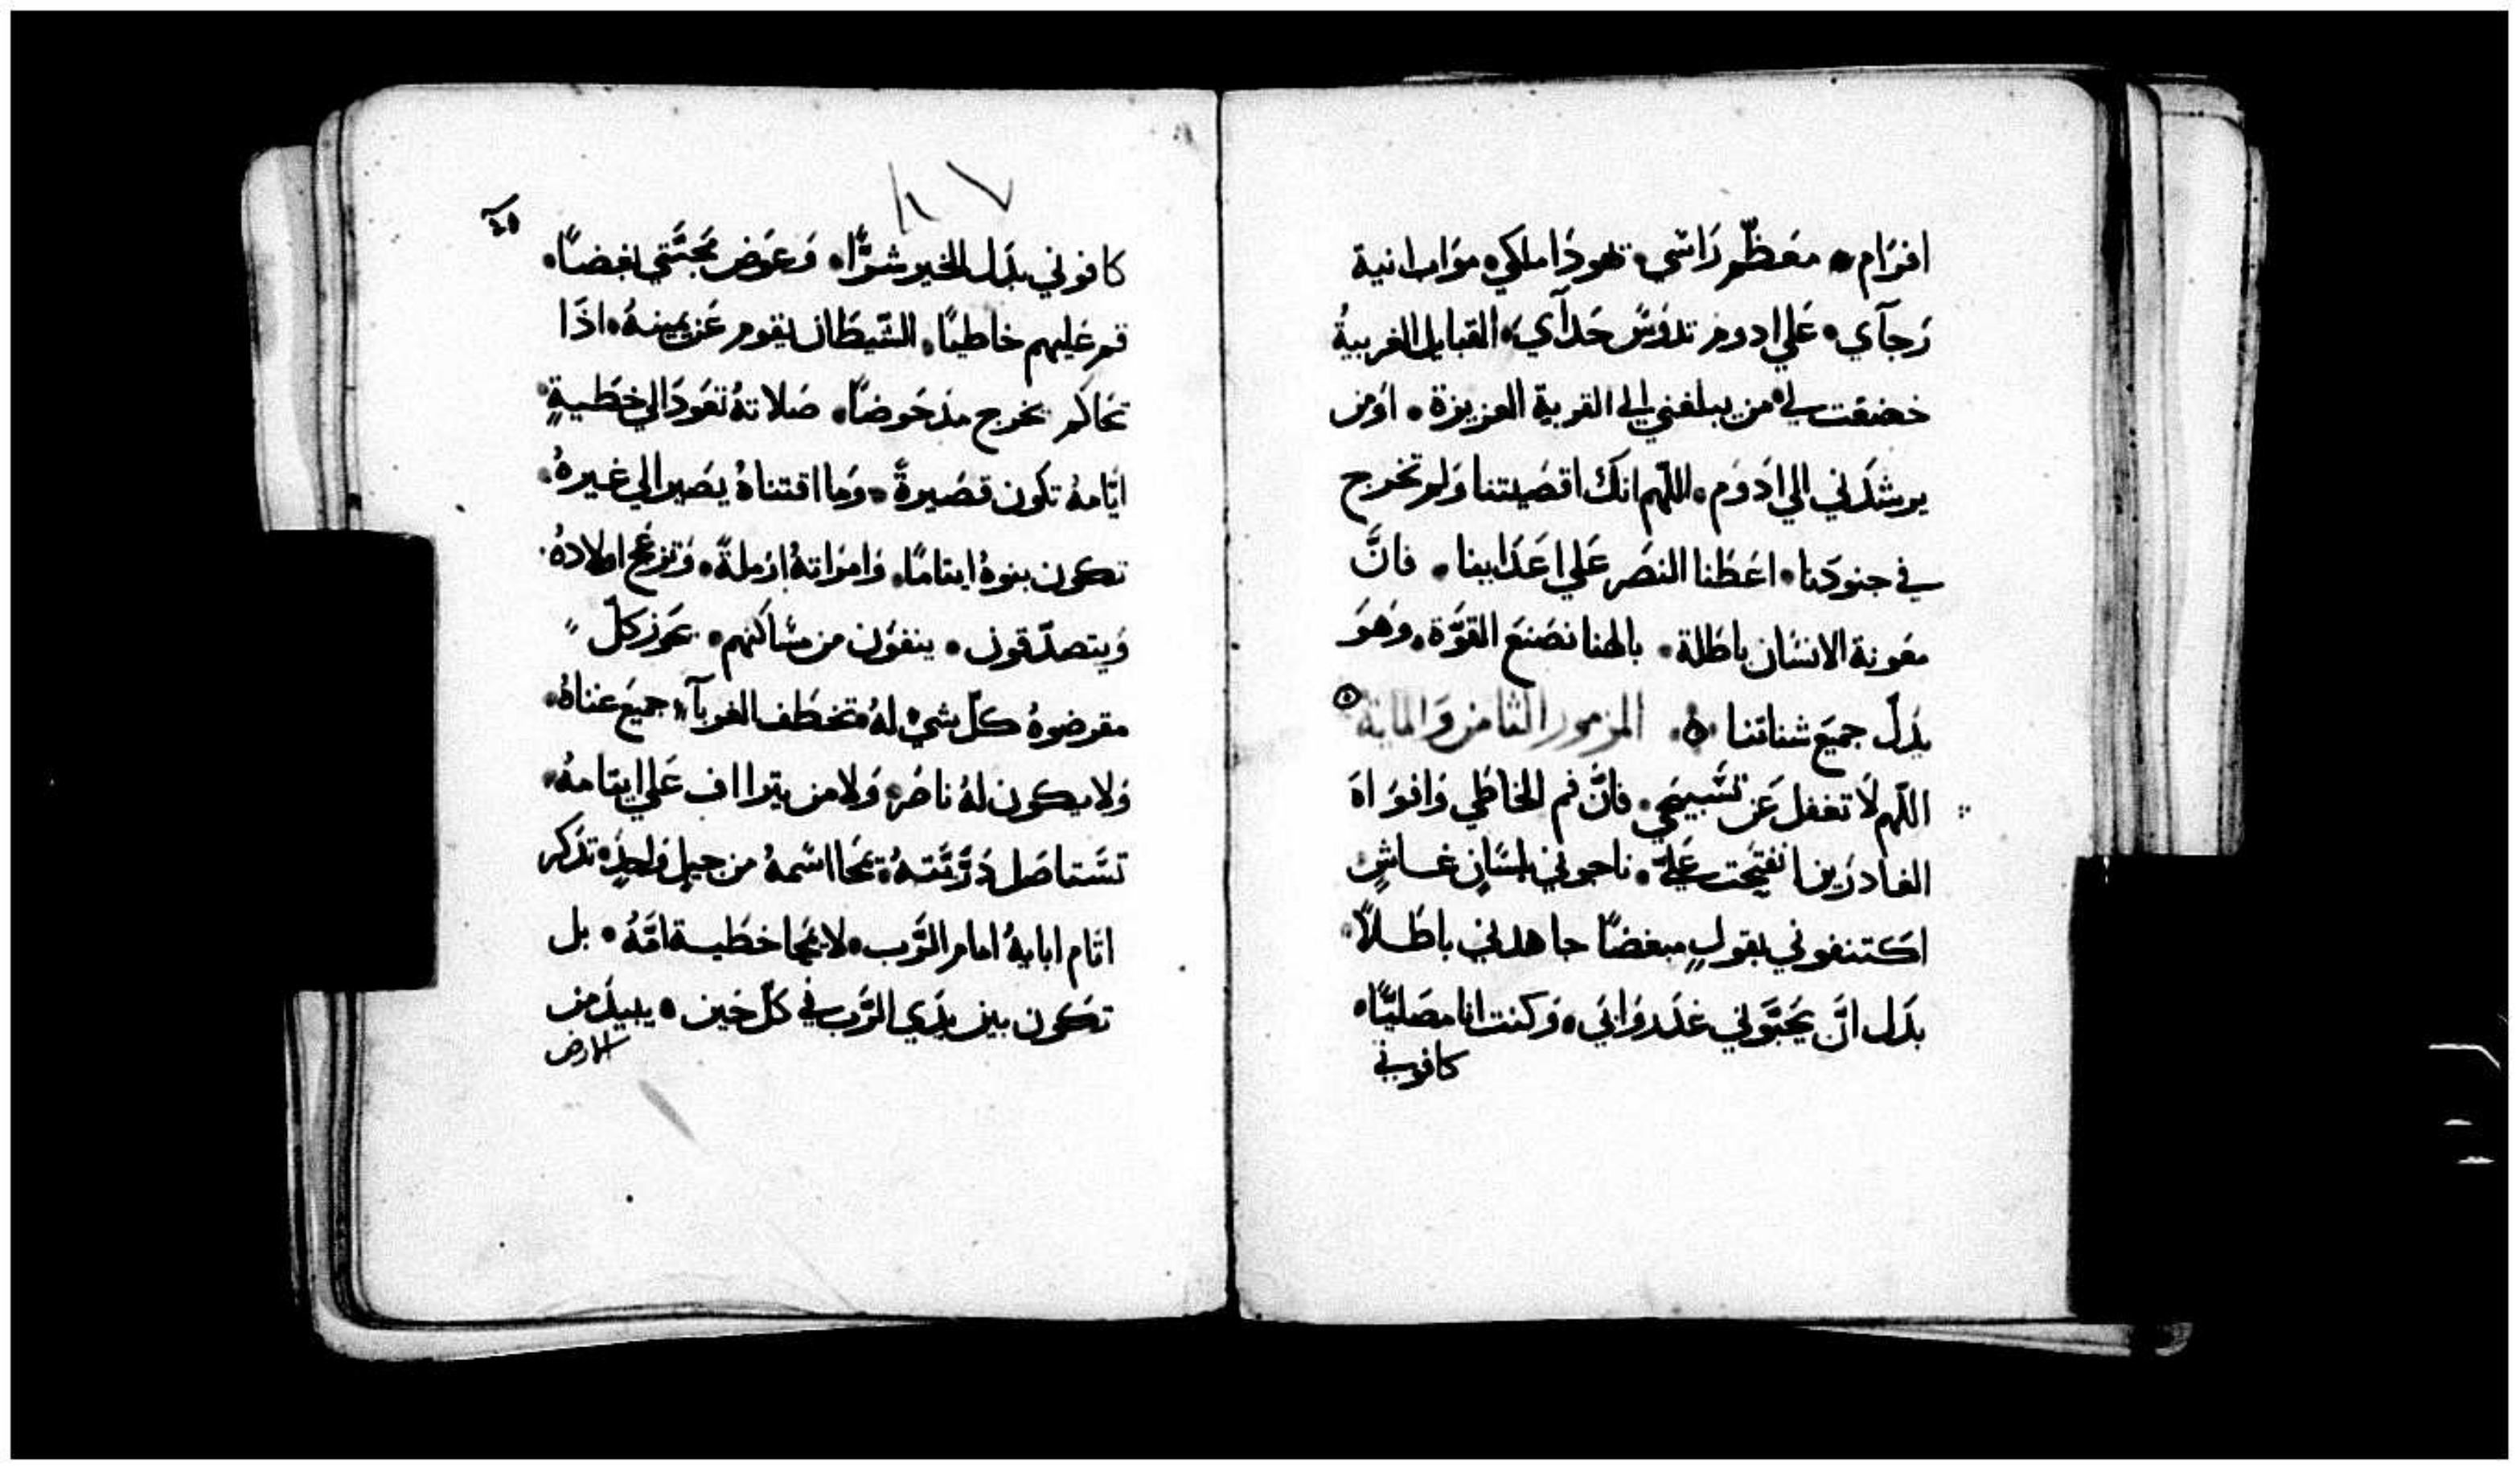 افرام معظّم رَاسي، تهودَا ملكي، مواب انية
رَجآي، عَلي ادوم تدوَسَ حَدآي، القبايل الغريبة
خضعت لي، من يبلغني الي القرية العزيزة، اوَ من
يرشدَني الي ادَوَم، اللّهم انكَ اقصَيتنا وَلم تخرج
في جنودَنا، اعَطَنا النصَر عَلي اعَدَايينا، فانَّ
مَعَونة الانسَان باطَلة، بالهنا نصَنعَ القوَّة، وهَوَ
يذَلّ جميعَ شناتنا ۞ المزمور الثامن وَالماية
اللّهم لَا تغفل عَن تسَبيحَي، فانَّ فم الخاطَي وَافوَاهَ
الغادرَين انفتحَت عَليّ، ناحوني بلسَانٍ غاشٍ
اكَتنفوني بقولٍ مبغضًا جاهدني باطَلاً
بدَل انَّ يحَبَّوني غدَروَاني، وَكنت انا مصَليًّا
كافوني
٤٥
كافوني بدَل الخير شرًّا، وَعَوَض مَحبَّتي بغضًا
قم عَليهم خاطيًا، الشيطَان يقوم عَن يمينهُ، اذَا
تحَاكَم يخرج مدَحَوضًا، صَلاتهُ تعَودَ الي خطَيةٍ
ايّامهُ تكَون قصَيرةً، وَما اقتناهُ يصَير الي غيرهُ
تكَون بنوهُ ايتامًا، وَامرَاتهُ ارَملةً، وَتزعَج اولادهُ
وَيتصدّقون، ينفوَن من مسَاكنهم، يحَوز كلّ
مقرضوهُ كلّ شيء لهُ، تخطَف الغربآء جميعَ عناهُ
وَلا يكَون لهُ ناصَر، وَلا من يتراف عَلي ايتامهُ
تسَتاصَل ذرَّيَّتهُ، يمحَا اسَمهُ من جيلٍ وَاحدٍ، تذكر
اثام ابايهُ امام الرَّب، لا يمحَا خطَية امَّهُ، بل
تكَون بين يدَي الرَّب في كلّ حَين، يبيدَ من
الارض